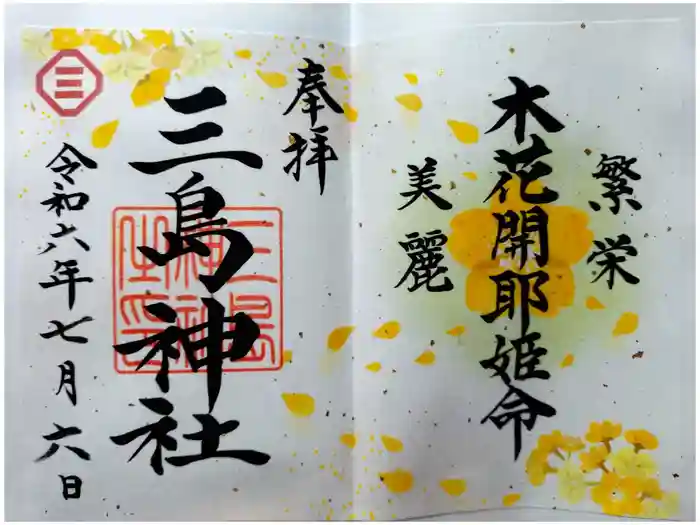 繁栄
木花開耶姫命
美麗
奉拝
三島神社
令和六年七月六日
三